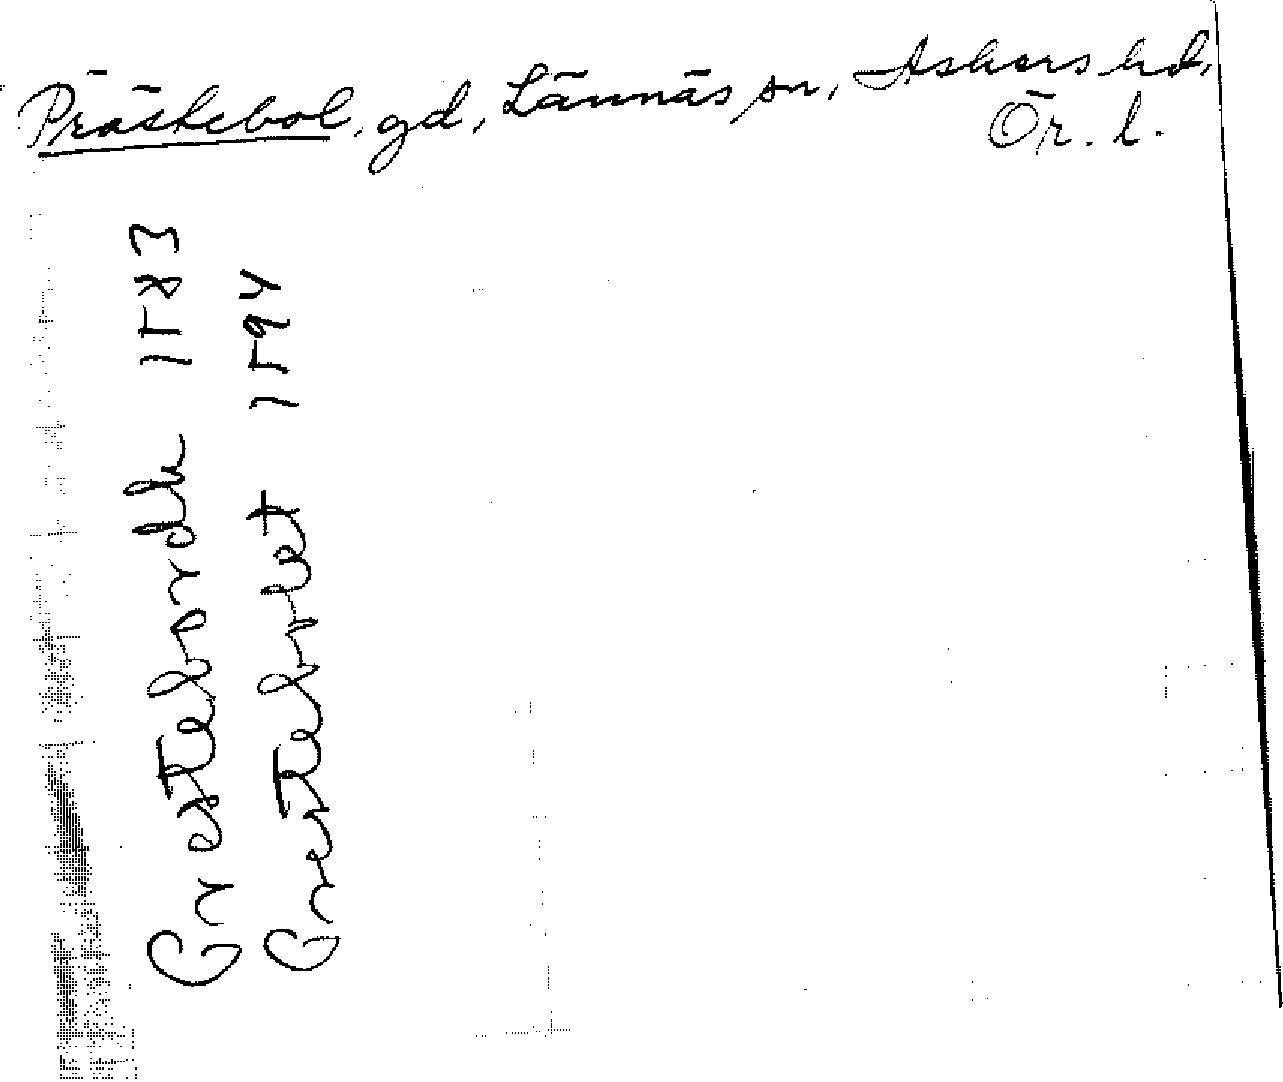 Prästebol, gd, Lännäs sn, Askers hd,
Ör. l.
Grestebordh 1583
Grestebolet 1594